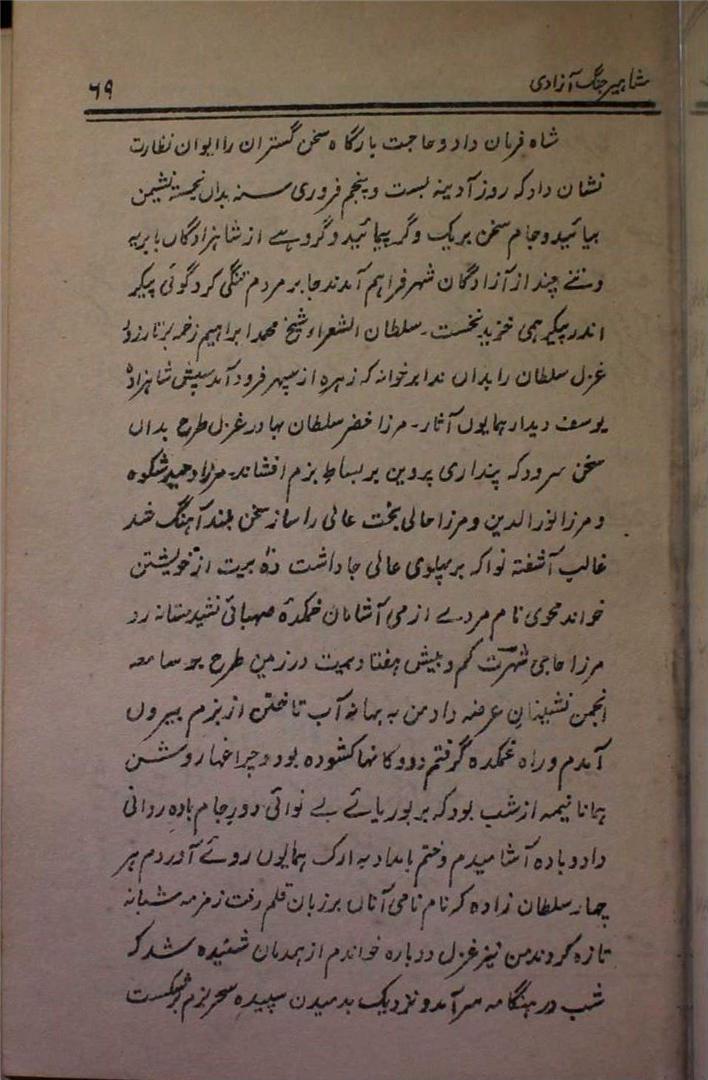 مشاہیر جنگ آزادی ۶۹
شاہ فرمان داد و حاجت بارگاہ سخن گستران را ایوان نظارت
نشان داد کہ روز آدینہ بست و پنجم فروری سنہ بداں خجستہ نشیمن
بیائید و جام سخن بریک دگر پیمائید و گروہے از شاہزادگاں بابریہ
و تنے چند از آزادگان شہر فراہم آمدند جا بر مردم تنگی کرد گوئی پیکر
اندر پیکر ہمی خزید نخست۔ سلطان الشعراء شیخ محمد ابراہیم زخمہ بر تار زد
غزل سلطان را بداں ندا برخواند کہ زہرہ از سپہر فرود آمد سپس شاہزادۂ
یوسف دیدار ہمایوں آثار۔ مرزا خضر سلطان بہادر غزل طرح بداں
سخن سرود کہ پنداری پروین بر بساط بزم افشاند۔ مرزا حیدر شکوہ
و مرزا نور الدین و مرزا عالی بخت عالی را ساز سخن بلند آہنگ شد
غالب آشفتہ نوا کہ بر پہلوی عالی جا داشت دہ بیت از خویشتن
خواند محوی نام مردے از می آشامان خمکدۂ صہبائی نشید مستانہ زد
مرزا حاجی شہرت کم و بیش ہفتاد بیت در زمین طرح بسامعہ
انجمن نشینان عرضہ داد من بہ بہانہ آب تاختن از بزم بیروں
آمدم و راہ غمکدہ گرفتم دوکانہا کشودہ بود و چراغہا روشن
ہمانا نیمہ از شب بود کہ بر بوریائے بے نوائی دور جام بادہ روانی
داد و بادہ آشامیدم و خفتم بامداد بہ ارک ہمایوں روئے آوردم ہر
چہار سلطان زادہ کہ نام نامی آناں بر زبان قلم رفت زمزمہ شبانہ
تازہ کردند من نیز غزل دوبارہ خواندم از ہمدماں شنیدہ شد کہ
شب در ہنگامہ سر آمد و نزدیک بدمیدن سپیدہ سحر بزم برشکست